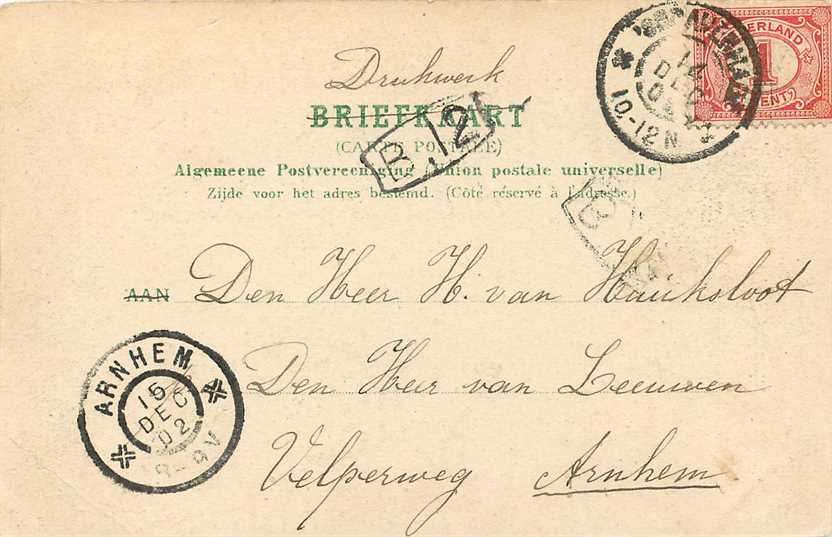 Drukwerk
BRIEFKAART
(CARTE POSTALE)
Algemeene Postvereeniging (Union postale universelle)
Zijde voor het adres bestemd. (Côté réservé à l'adresse.)
NEDERLAND
1
CENT
'SGRAVENHAGE
14
DEC
02
10-12N
B 12
B
AAN Den Heer H. van Hauksloot
Den Heer van Leeuwen
Velperweg Arnhem
ARNHEM
15
DEC
02